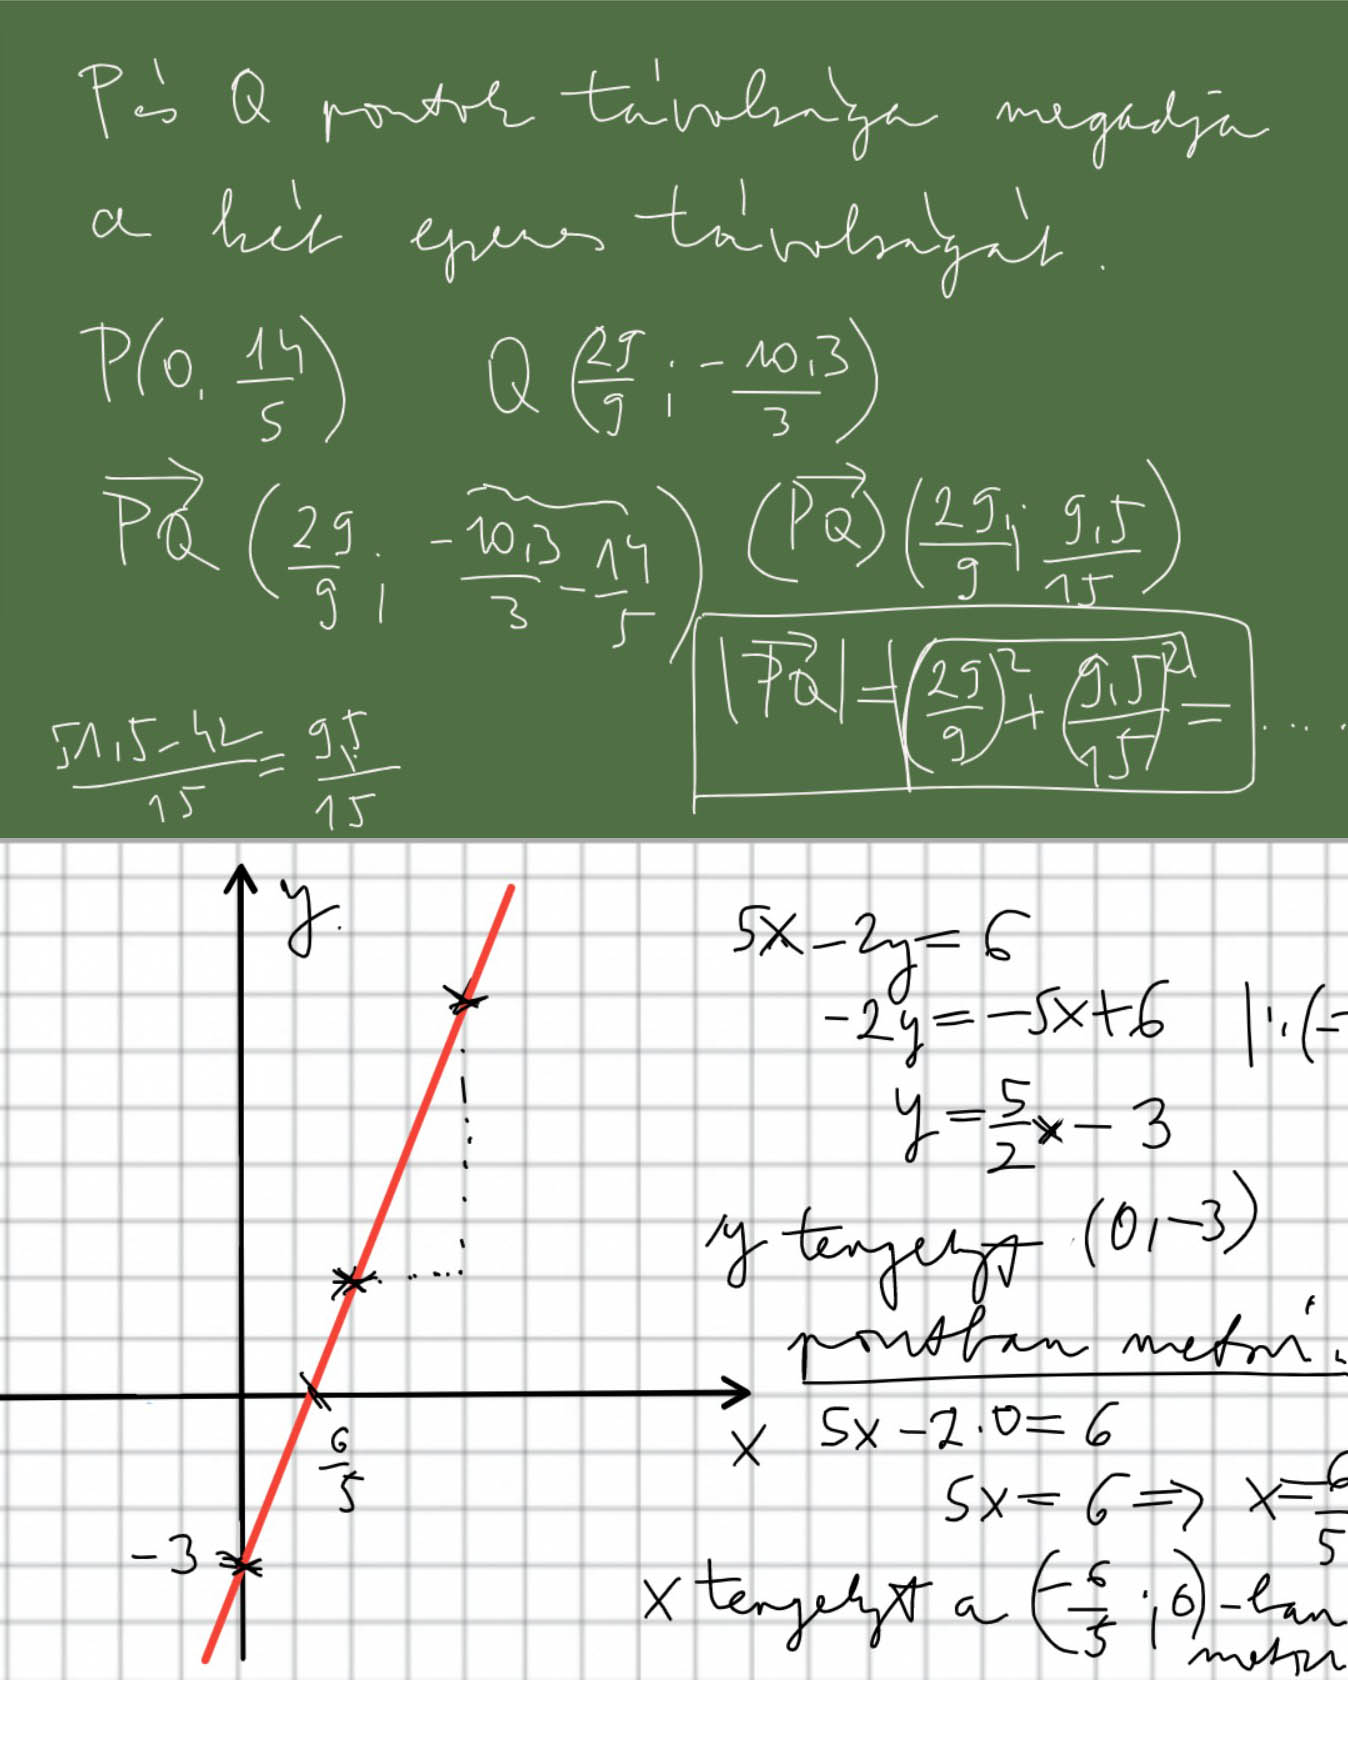 P és Q pontok távolsága megadja
a két egyenes távolságát.
P(0, 14/5) Q(29/9 ; -10,3/3)
PQ (29/9 ; -10,3/3 - 14/5) (PQ) (29/9 ; 9,5/15)
|PQ| = √((29/9)² + (9,5/15)²) = ....
51,5-42/15 = 9,5/15
y
5x-2y=6
-2y=-5x+6 |:(-
y=5/2x-3
y tengelyt (0,-3)
pontban metszi.
x
6/5
-3
5x-2·0=6
5x=6 => x=6/5
x tengelyt a (-6/5 ; 0)-ban
metszi